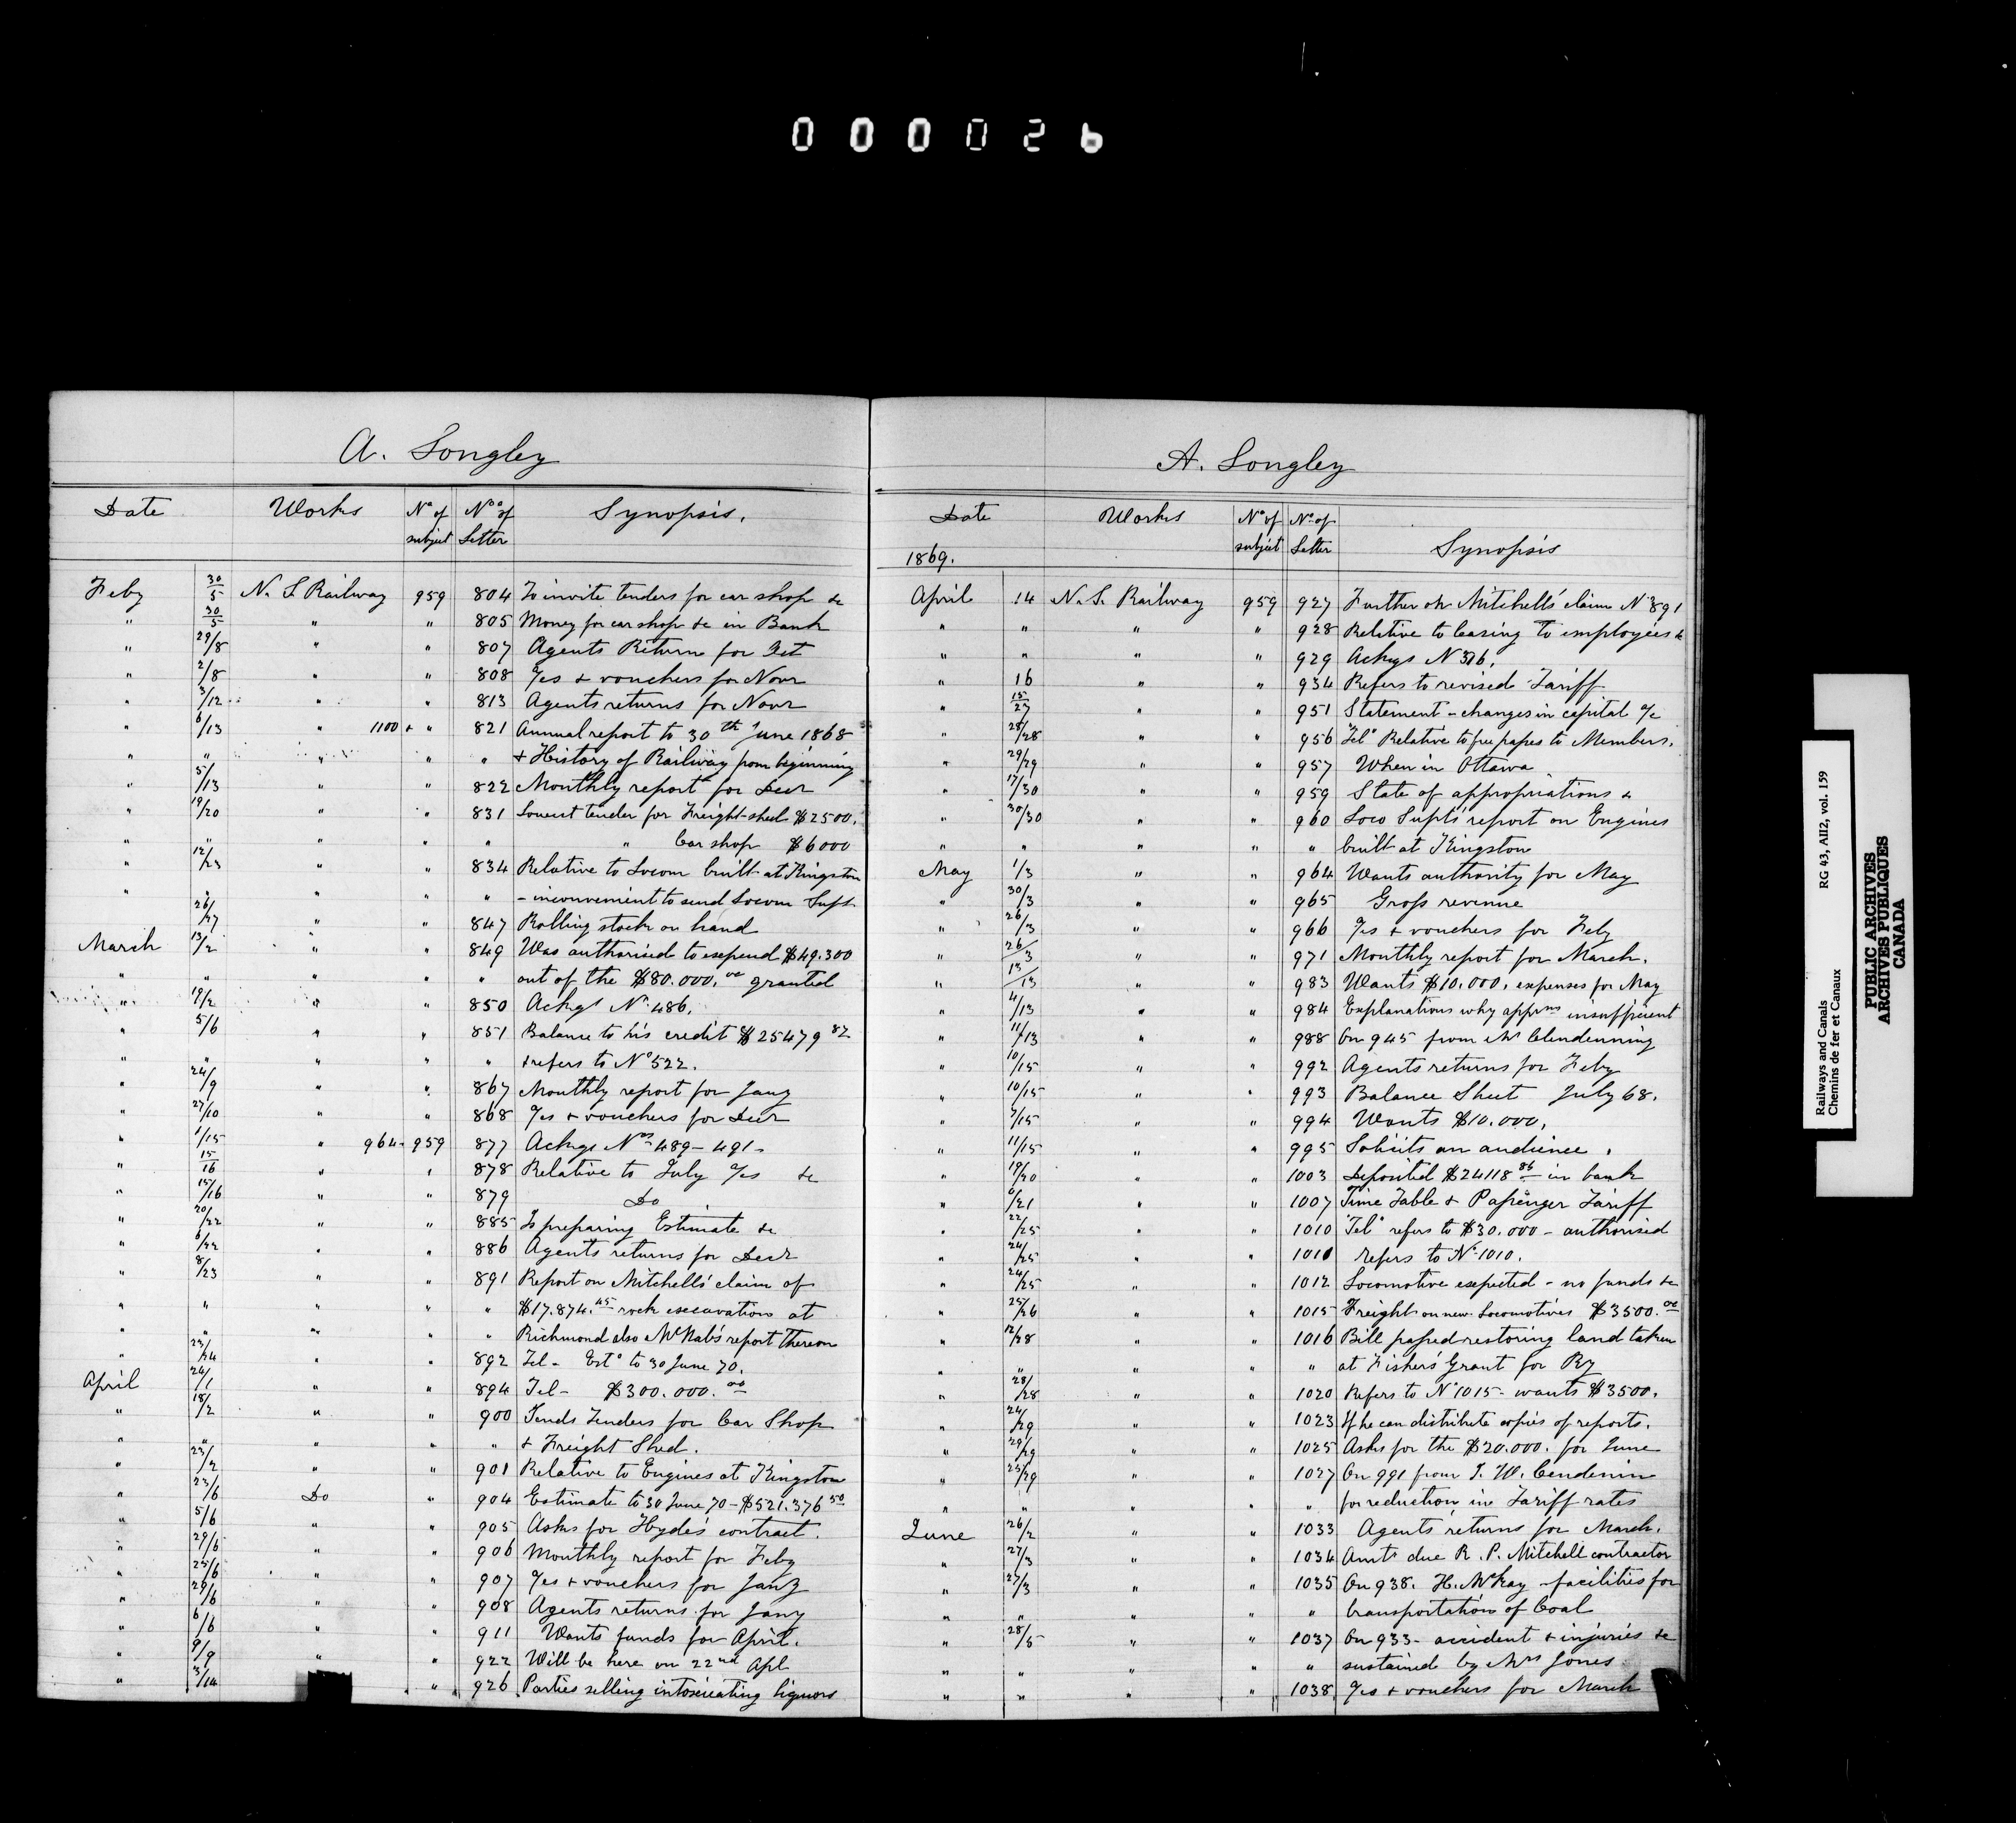 000026
A. Longley
Date Works No of subject Nos of Letter Synopsis.
Feby 30/5 N. S. Railway 959 804 To invite tenders for car shop &c
" 30/5 " " 805 Money for car shop &c in Bank
" 29/8 " " 807 Agents Return for Oct
" 2/8 " " 808 %s & vouchers for Novr
" 3/12 " " 813 Agents returns for Novr
" 6/13 " 1100 + " 821 Annual report to 30th June 1868
" " " " " & History of Railway from beginning
" 5/13 " " 822 Monthly report for Decr
" 19/20 " " 831 Lowest tender for Freight-shed $2500.
" " " " " " Car shop $6000
" 12/23 " " 834 Relative to Locom built at Kingston
" " " " " - inconvenient to send Locom Supt
" 26/27 " " 847 Rolling stock on hand
March 13/2 " " 849 Was authorised to expend $49.300
" " " " " out of the $80.000.00 granted
" 19/2 " " 850 Ackgs No 486.
" 5/6 " " 851 Balance to his credit $25479 82
" " " " " & refers to No 522.
" 24/9 " " 867 Monthly report for Jany
" 27/10 " " 868 %s & vouchers for Decr
" 1/15 " 964 - 959 877 Ackgs Nos 489 - 491 -
" 15/16 " " 878 Relative to July %s &c
" 15/16 " " 879 Do
" 20/22 " " 885 Is preparing Estimate &c
" 6/22 " " 886 Agents returns for Decr
" 8/23 " " 891 Report on Mitchell's claim of
" " " " " $17.874.45 rock excavation at
" " " " " Richmond also McNab's report thereon
" 23/24 " " 892 Tel - Esto to 30 June 70.
April 24/1 " " 894 Tel - $300.000.00
" 18/2 " " 900 Sends Tenders for Car Shop
" " " " " & Freight Shed.
" 23/2 " " 901 Relative to Engines at Kingston
" 23/6 Do " 904 Estimate to 30 June 70 - $521.376 50
" 5/6 " " 905 Asks for Hyde's contract.
" 29/6 " " 906 Monthly report for Feby
" 25/6 " " 907 %s & vouchers for Jany
" 29/6 " " 908 Agents returns for Jany
" 6/6 " " 911 Wants funds for April.
" 9/9 " " 922 Will be here on 22nd Apl
" 3/14 " 926 Parties selling intoxicating liquors
A. Longley
Date Works No of subject No of Letter Synopsis
1869.
April 14 N. S. Railway 959 927 Further on Mitchell's claim No 891
" " " " 928 Relative to leasing to employees &
" " " " 929 Ackgs No 376.
" 16 " " 934 Refers to revised Tariff
" 15/27 " " 951 Statement - changes in capital %c
" 28/28 " " 956 Telo Relative to free passes to Members.
" 29/29 " " 957 When in Ottawa
" 17/30 " " 959 State of appropriations &
" 30/30 " " 960 Loco Supt's report on Engines
" " " " " built at Kingston
May 1/3 " " 964 Wants authority for May
" 30/3 " " 965 Gross revenue
" 26/3 " " 966 %s & vouchers for Feby
" 26/3 " " 971 Monthly report for March.
" 13/13 " " 983 Wants $10.000. expenses for May
" 4/13 " " 984 Explanations why apprns insufficient
" 11/13 " " 988 On 945 from Mr Clendenning
" 10/15 " " 992 Agents returns for Feby
" 10/15 " " 993 Balance Sheet July 68.
" 7/15 " " 994 Wants $10.000.
" 11/15 " " 995 Solicits an audience.
" 19/20 " " 1003 Deposited $24118 86 in bank
" 6/21 " " 1007 Time Table & Passenger Tariff
" 22/25 " " 1010 Telo refers to $30.000 - authorised
" 24/25 " " 1011 refers to No 1010.
" 24/25 " " 1012 Locomotive expected - no funds &c
" 25/26 " " 1015 Freight on new Locomotives $3500.00
" 12/28 " " 1016 Bill passed restoring land taken
" " " " " at Fishers' Grant for Ry
" 28/28 " " 1020 Refers to No 1015 - wants $3500.
" 24/29 " " 1023 If he can distribute copies of reports.
" 29/29 " " 1025 Asks for the $20.000. for June
" 25/29 " " 1027 On 991 from J. W. Cendenin
" " " " " for reduction in Tariff rates
June 26/2 " " 1033 Agents' returns for March.
" 27/3 " " 1034 Amt due R. P. Mitchell contractor
" 27/3 " " 1035 On 938. H. McKay - facilities for
" " " " " transportation of Coal
" 28/5 " " 1037 On 933 - accident & injuries &c
" " " " " sustained by Mrs Jones
" " " " 1038 %s & vouchers for March
Railways and Canals RG 43, AII2, vol. 159
Chemins de fer et Canaux
PUBLIC ARCHIVES
ARCHIVES PUBLIQUES
CANADA